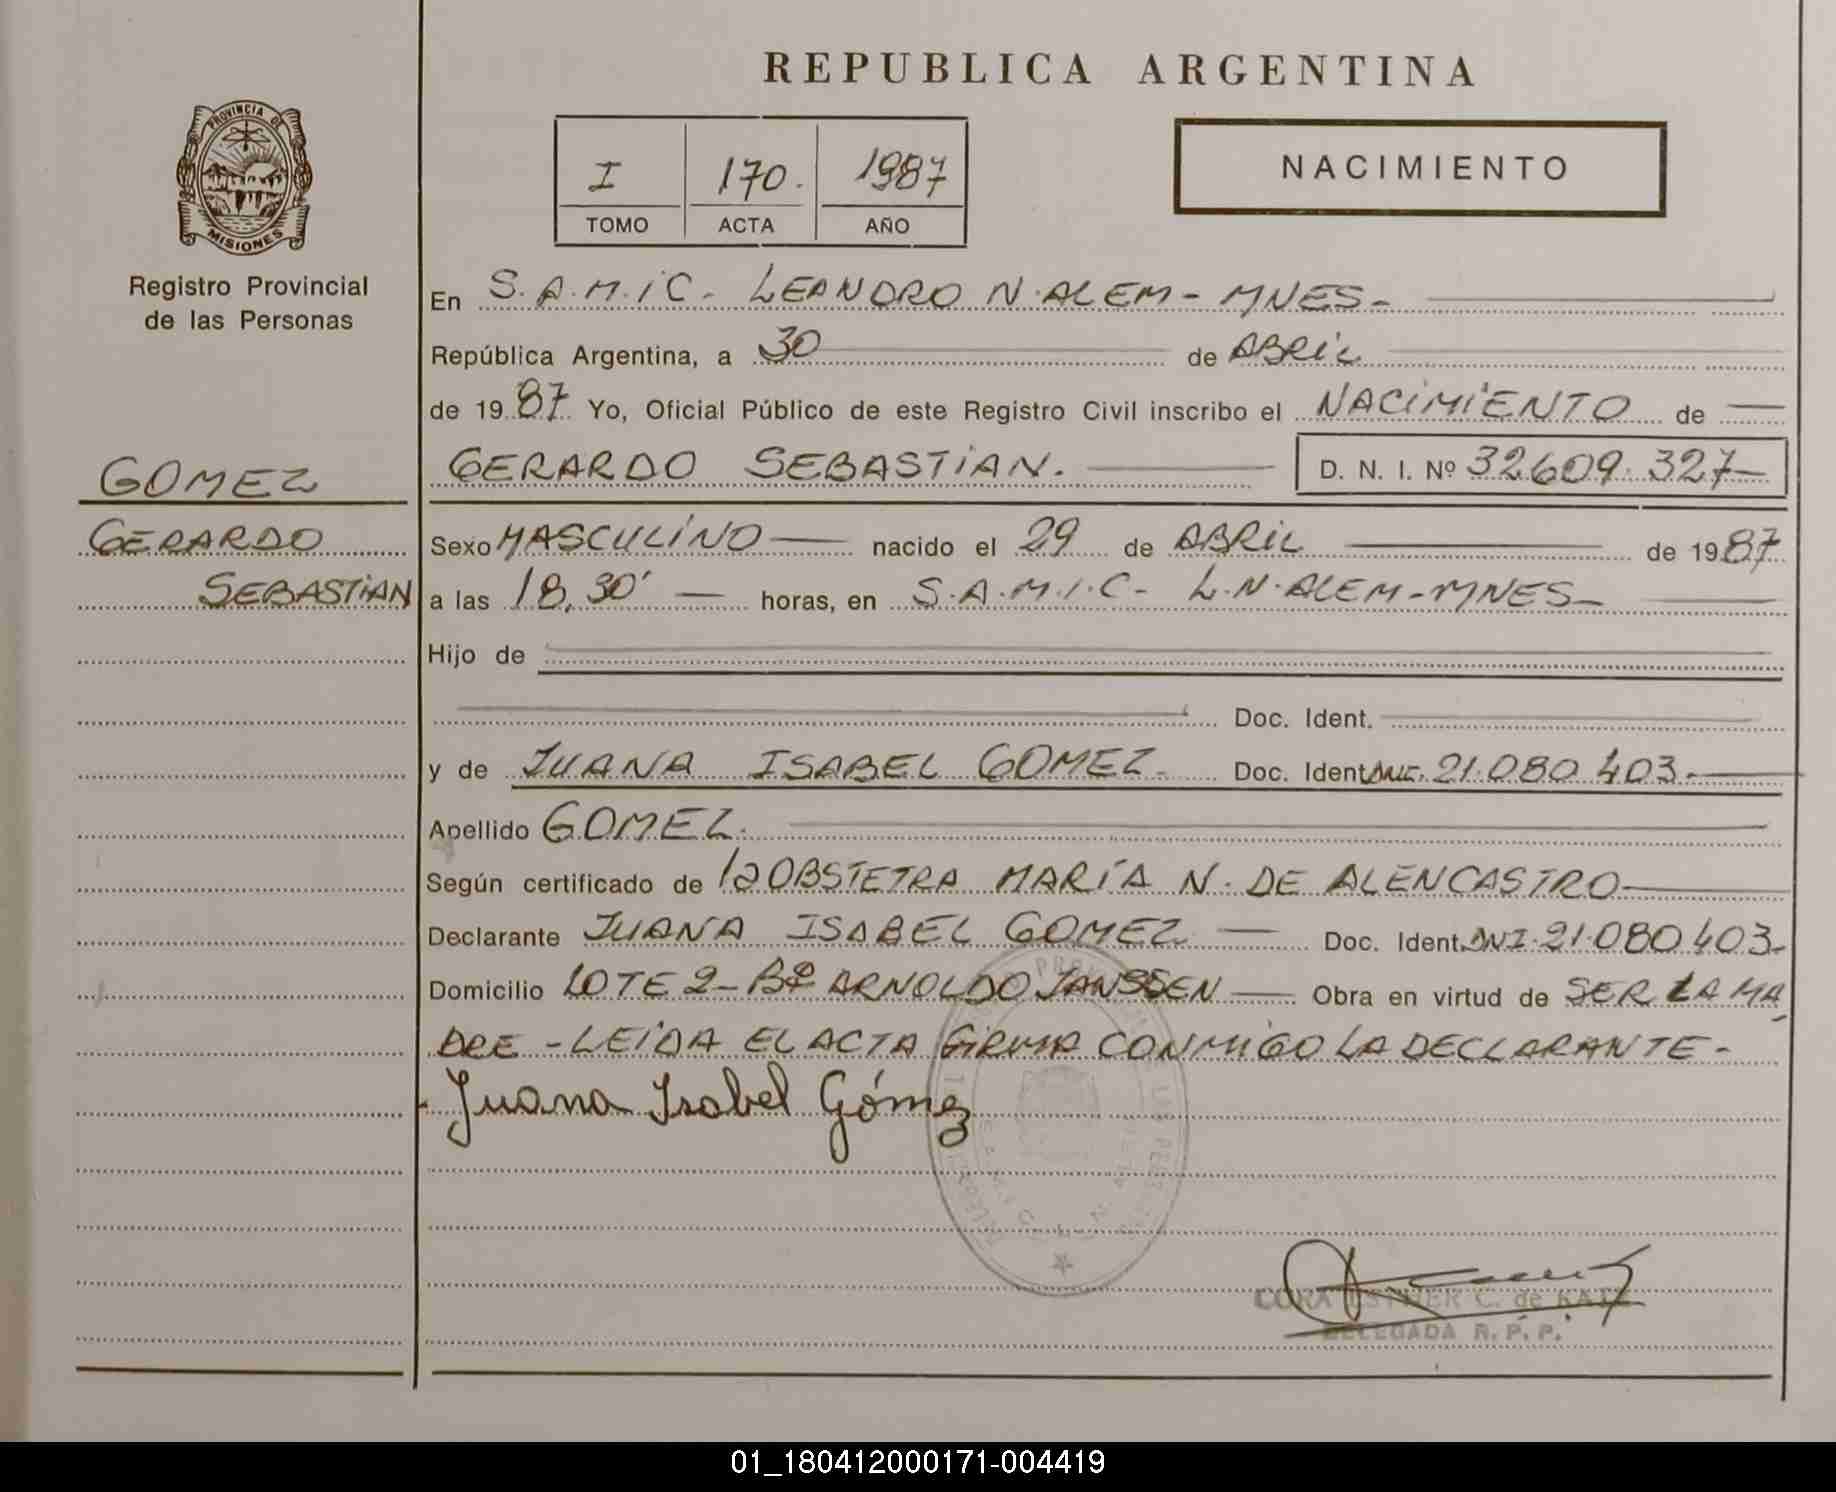 REPUBLICA ARGENTINA
PROVINCIA DE
MISIONES
Registro Provincial
de las Personas
I 170. 1987
TOMO ACTA AÑO
NACIMIENTO
En S.A.M.I.C- LEANDRO N.ALEM- MNES-
República Argentina, a 30 de ABRIL
de 1987 Yo, Oficial Público de este Registro Civil inscribo el NACIMIENTO de
GERARDO SEBASTIAN. D. N. I. Nº 32609.327-
GOMEZ
GERARDO
SEBASTIAN
Sexo MASCULINO nacido el 29 de ABRIL de 1987
a las 18,30' horas, en S.A.M.I.C- L.N.ALEM-MNES-
Hijo de
Doc. Ident.
y de JUANA ISABEL GOMEZ- Doc. Ident. 21.080.403.
Apellido GOMEZ.
Según certificado de la OBSTETRA MARÍA N. DE ALENCASTRO
Declarante JUANA ISABEL GOMEZ Doc. Ident. DNI.21.080.403-
Domicilio LOTE 2- Bº ARNOLDO JANSSEN Obra en virtud de SER LA MA
DRE -LEIDA EL ACTA FIRMA CONMIGO LA DECLARANTE-
Juana Isabel Gómez
CORA ESTHER C. de
DELEGADA R. P. P.
01_180412000171-004419